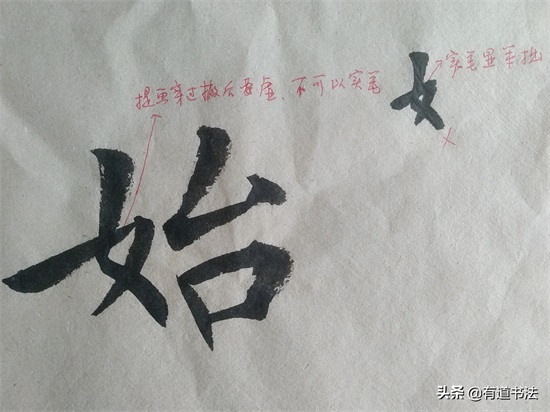 提画穿过撇后要虚、不可以实笔
女
实笔显笨拙
始
头条@有道书法